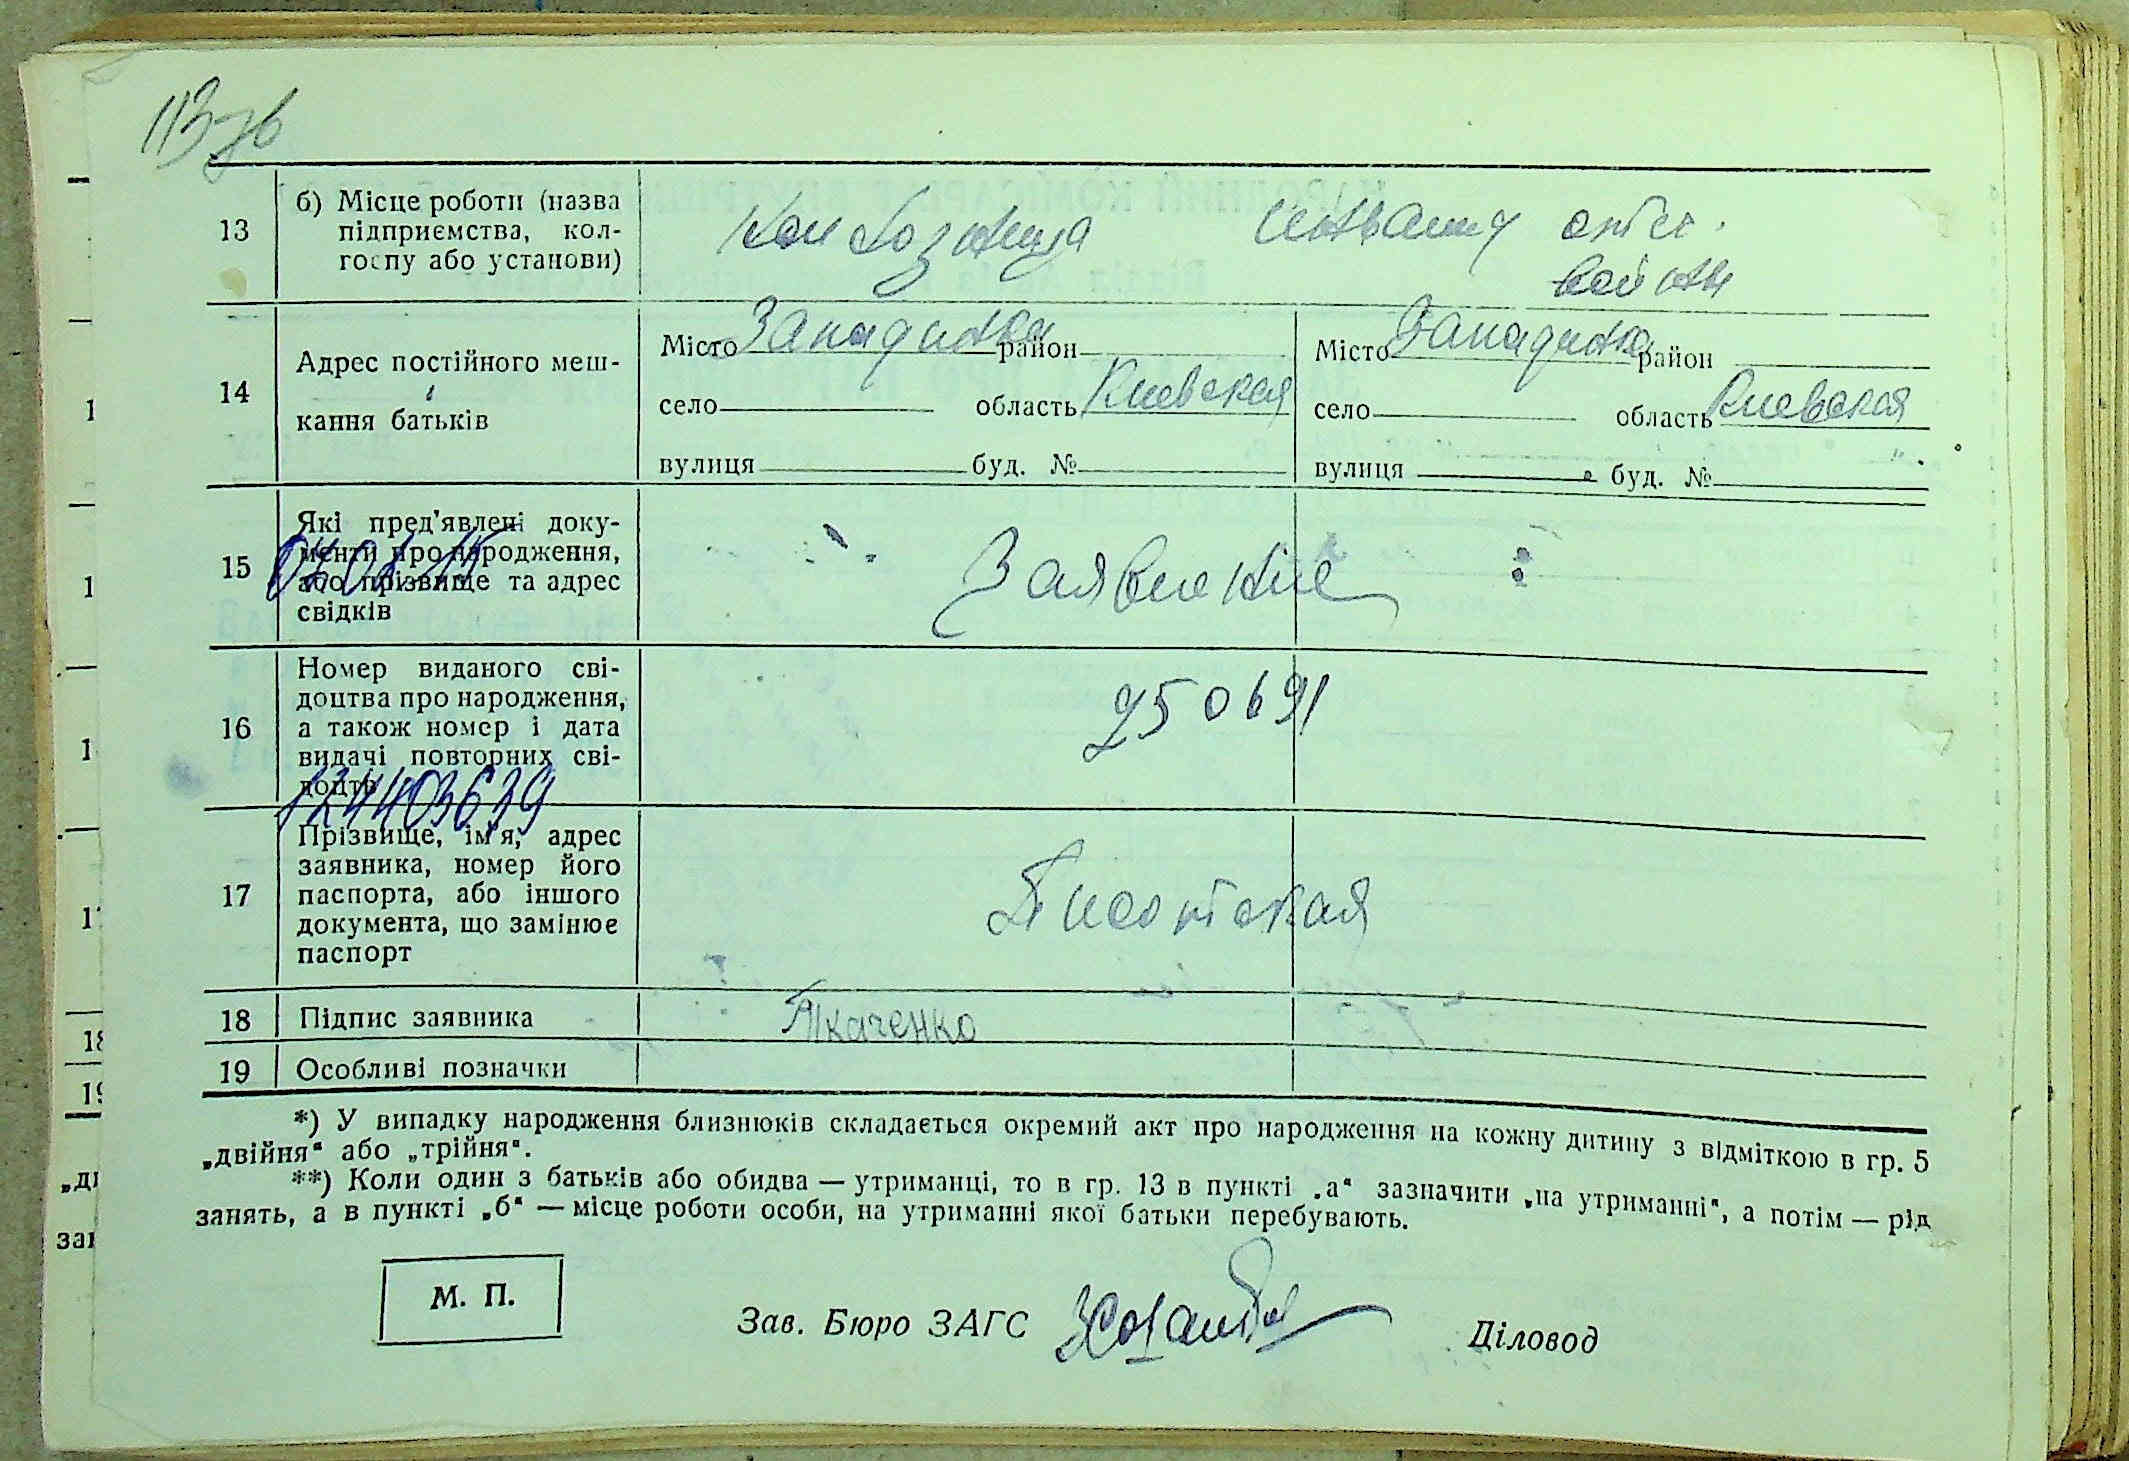 113
13
б) Місце роботи (назва
підприємства, кол-
госпу або установи)
колхозница
инвалид отеч.
войны
14
Адрес постійного меш-
кання батьків
Місто Западинка район
село область Киевская
вулиця буд. №
Місто Западинка район
село область Киевская
вулиця буд. №
15
Які пред'явлені доку-
менти про народження,
або прізвище та адрес
свідків
Заявление
16
Номер виданого сві-
доцтва про народження,
а також номер і дата
видачі повторних сві-
доцтв
250691
124403639
17
Прізвище, ім'я, адрес
заявника, номер його
паспорта, або іншого
документа, що замінює
паспорт
18
Підпис заявника
Ткаченко
19
Особливі позначки
*) У випадку народження близнюків складається окремий акт про народження на кожну дитину з відміткою в гр. 5
„двійня“ або „трійня“.
**) Коли один з батьків або обидва — утриманці, то в гр. 13 в пункті „а“ зазначити „на утриманні“, а потім — рід
занять, а в пункті „б“ — місце роботи особи, на утриманні якої батьки перебувають.
М. П.
Зав. Бюро ЗАГС
Діловод